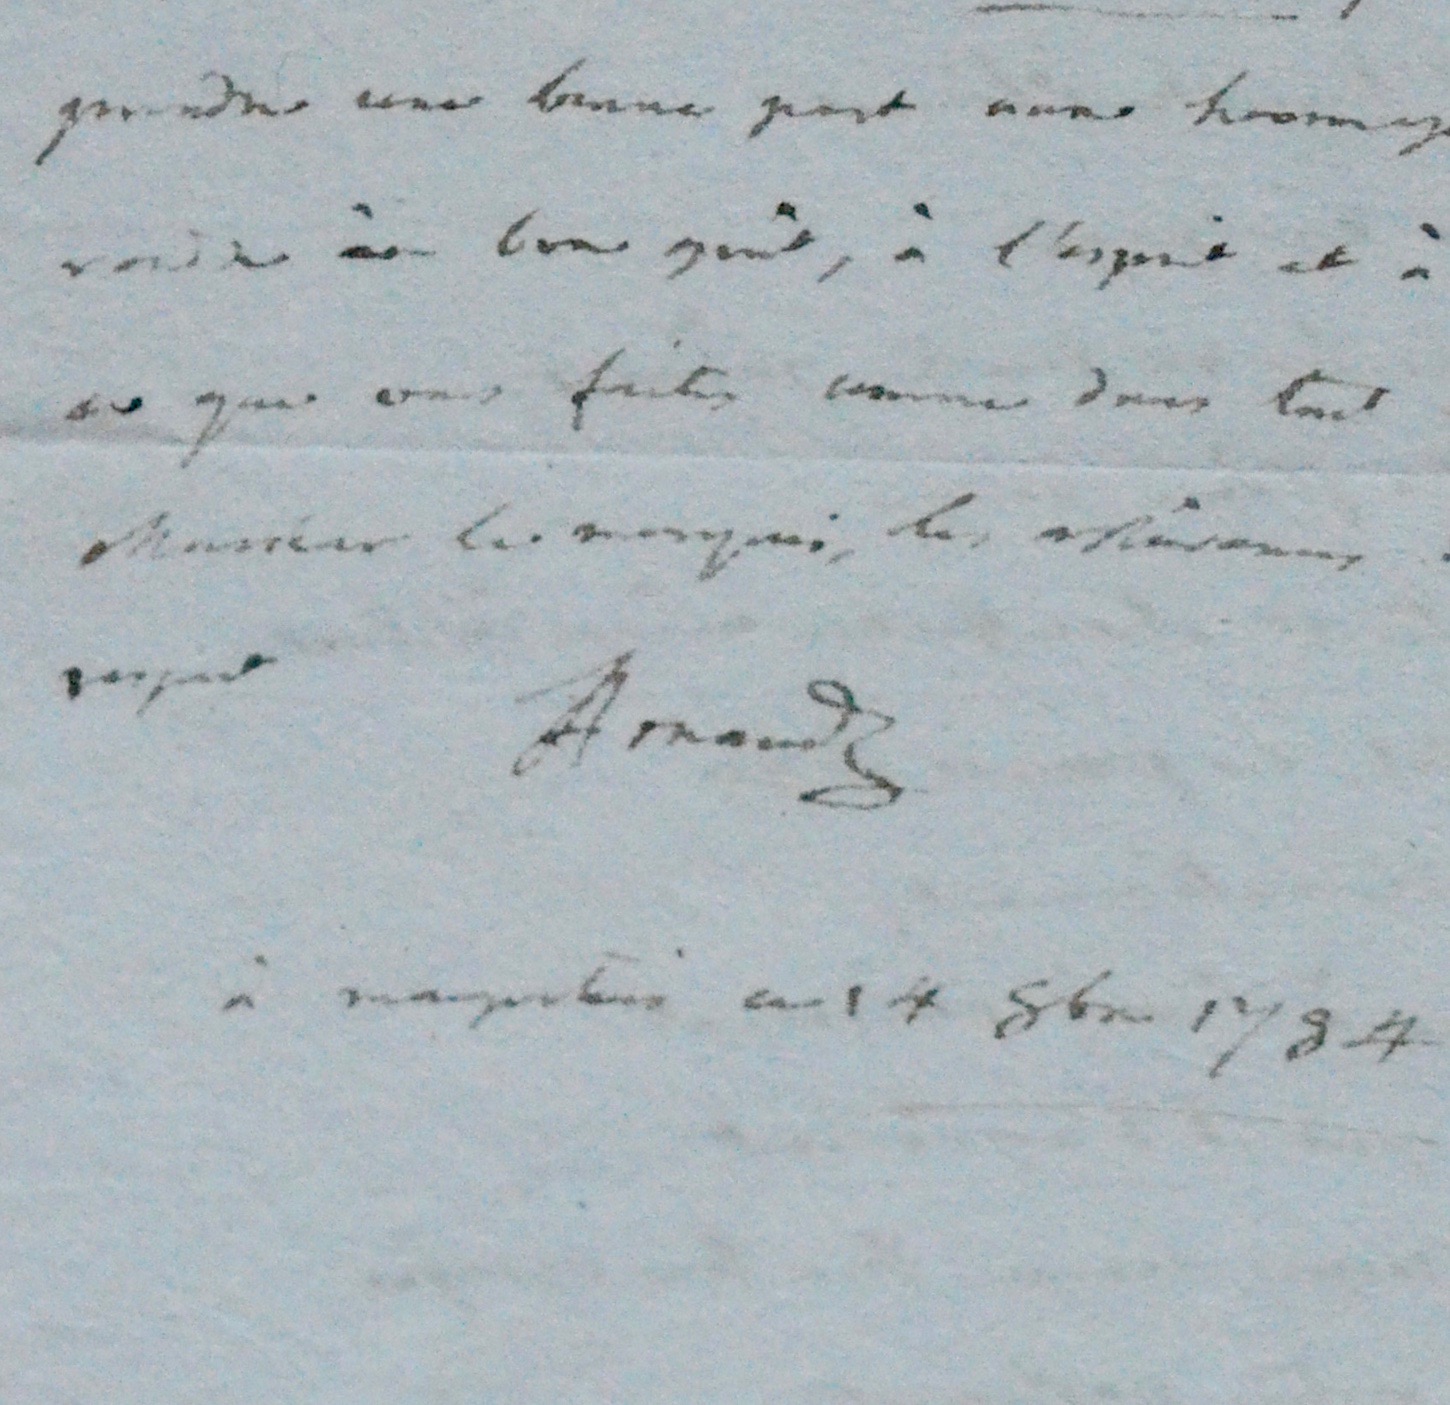 prendre une bonne part une hommag
rendu au bon goût, à l'esprit et à
ce que vous faites comme dans tout
Monsieur le marquis, les assurances
respect
Arnaud
à ce 14 8bre 1784